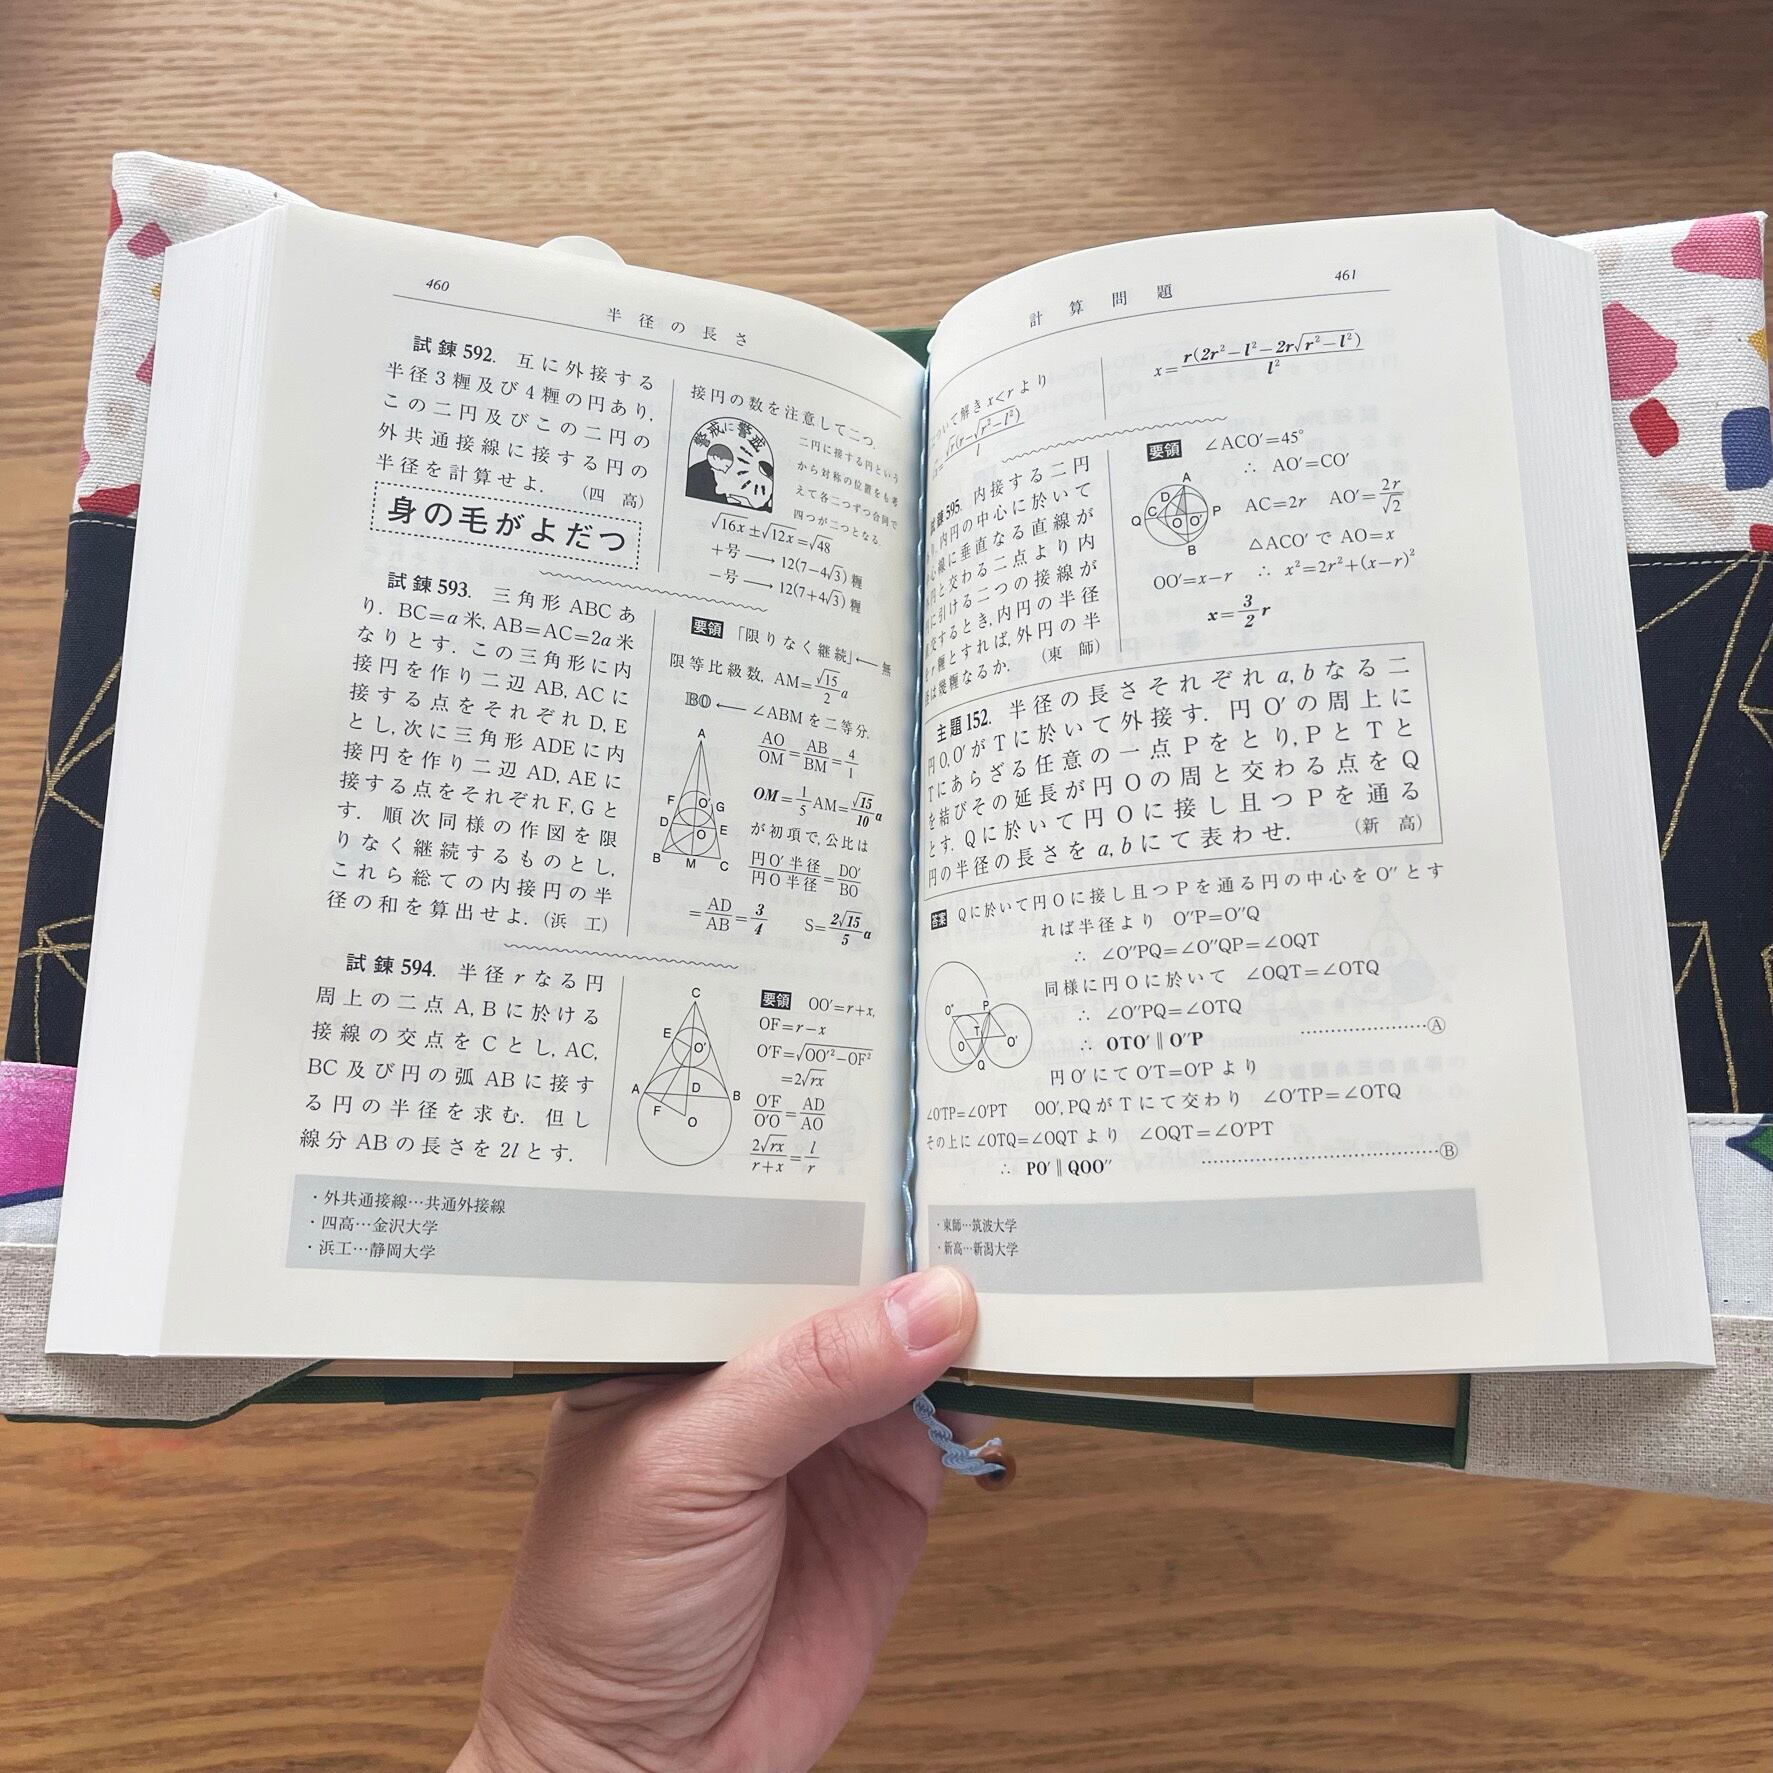 460
半径の長さ
試錬592. 互に外接する
半径3糎及び4糎の円あり.
この二円及びこの二円の
外共通接線に接する円の
半径を計算せよ. (四 高)
身の毛がよだつ
接円の数を注意して二つ.
警戒に警戒
二円に接する円という
から対称の位置をも考
えて各二つずつ合同で
四つが二つとなる.
√16x ± √12x = √48
+号 ⟶ 12(7−4√3) 糎
−号 ⟶ 12(7+4√3) 糎
試錬593. 三角形 ABC あ
り. BC=a 米, AB=AC=2a 米
なりとす. この三角形に内
接円を作り二辺 AB, AC に
接する点をそれぞれ D, E
とし, 次に三角形 ADE に内
接円を作り二辺 AD, AE に
接する点をそれぞれ F, G と
す. 順次同様の作図を限
りなく継続するものとし,
これら総ての内接円の半
径の和を算出せよ. (浜 工)
要領 「限りなく継続」⟵ 無
限等比級数, AM=√15/2 a
BO ⟵ ∠ABM を二等分.
AO/OM=AB/BM=4/1
OM=1/5 AM=√15/10 a
が初項で, 公比は
円O′半径/円O半径=DO′/BO
=AD/AB=3/4 S=2√15/5 a
A
F O′ G
D O E
B M C
試錬594. 半径 r なる円
周上の二点 A, B に於ける
接線の交点を C とし, AC,
BC 及び円の弧 AB に接す
る円の半径を求む. 但し
線分 AB の長さを 2l とす.
C
E O′
A D B
F O
要領 OO′=r+x,
OF=r−x
O′F=√OO′²−OF²
=2√rx
O′F/O′O=AD/AO
2√rx/r+x=l/r
・外共通接線…共通外接線
・四高…金沢大学
・浜工…静岡大学
461
計算問題
いて解き x<r より
√r(r−√r²−l²)/l
x=r(2r²−l²−2r√r²−l²)/l²
595. 内接する二円
内円の中心に於いて
心線に垂直なる直線が
円と交わる二点より内
に引ける二つの接線が
交するとき, 内円の半径
r 糎とすれば, 外円の半
は幾糎なるか. (東 師)
要領 ∠ACO′=45°
∴ AO′=CO′
AC=2r AO′=2r/√2
△ACO′ で AO=x
OO′=x−r ∴ x²=2r²+(x−r)²
x=3/2 r
A
D
Q C O O′ P
B
主題152. 半径の長さそれぞれ a, b なる二
円 O, O′ が T に於いて外接す. 円 O′ の周上に
T にあらざる任意の一点 P をとり, P と T と
を結びその延長が円 O の周と交わる点を Q
とす. Q に於いて円 O に接し且つ P を通る
円の半径の長さを a, b にて表わせ. (新 高)
答案 Q に於いて円 O に接し且つ P を通る円の中心を O″ とす
れば半径より O″P=O″Q
∴ ∠O″PQ=∠O″QP=∠OQT
同様に円 O に於いて ∠OQT=∠OTQ
∴ ∠O″PQ=∠OTQ
∴ OTO′ ∥ O″P ……………… Ⓐ
円 O′ にて O′T=O′P より
∠O′TP=∠O′PT OO′, PQ が T にて交わり ∠O′TP=∠OTQ
その上に ∠OTQ=∠OQT より ∠OQT=∠O′PT
∴ PO′ ∥ QOO″ ……………… Ⓑ
O″ P
T
O O′
Q
・東師…筑波大学
・新高…新潟大学